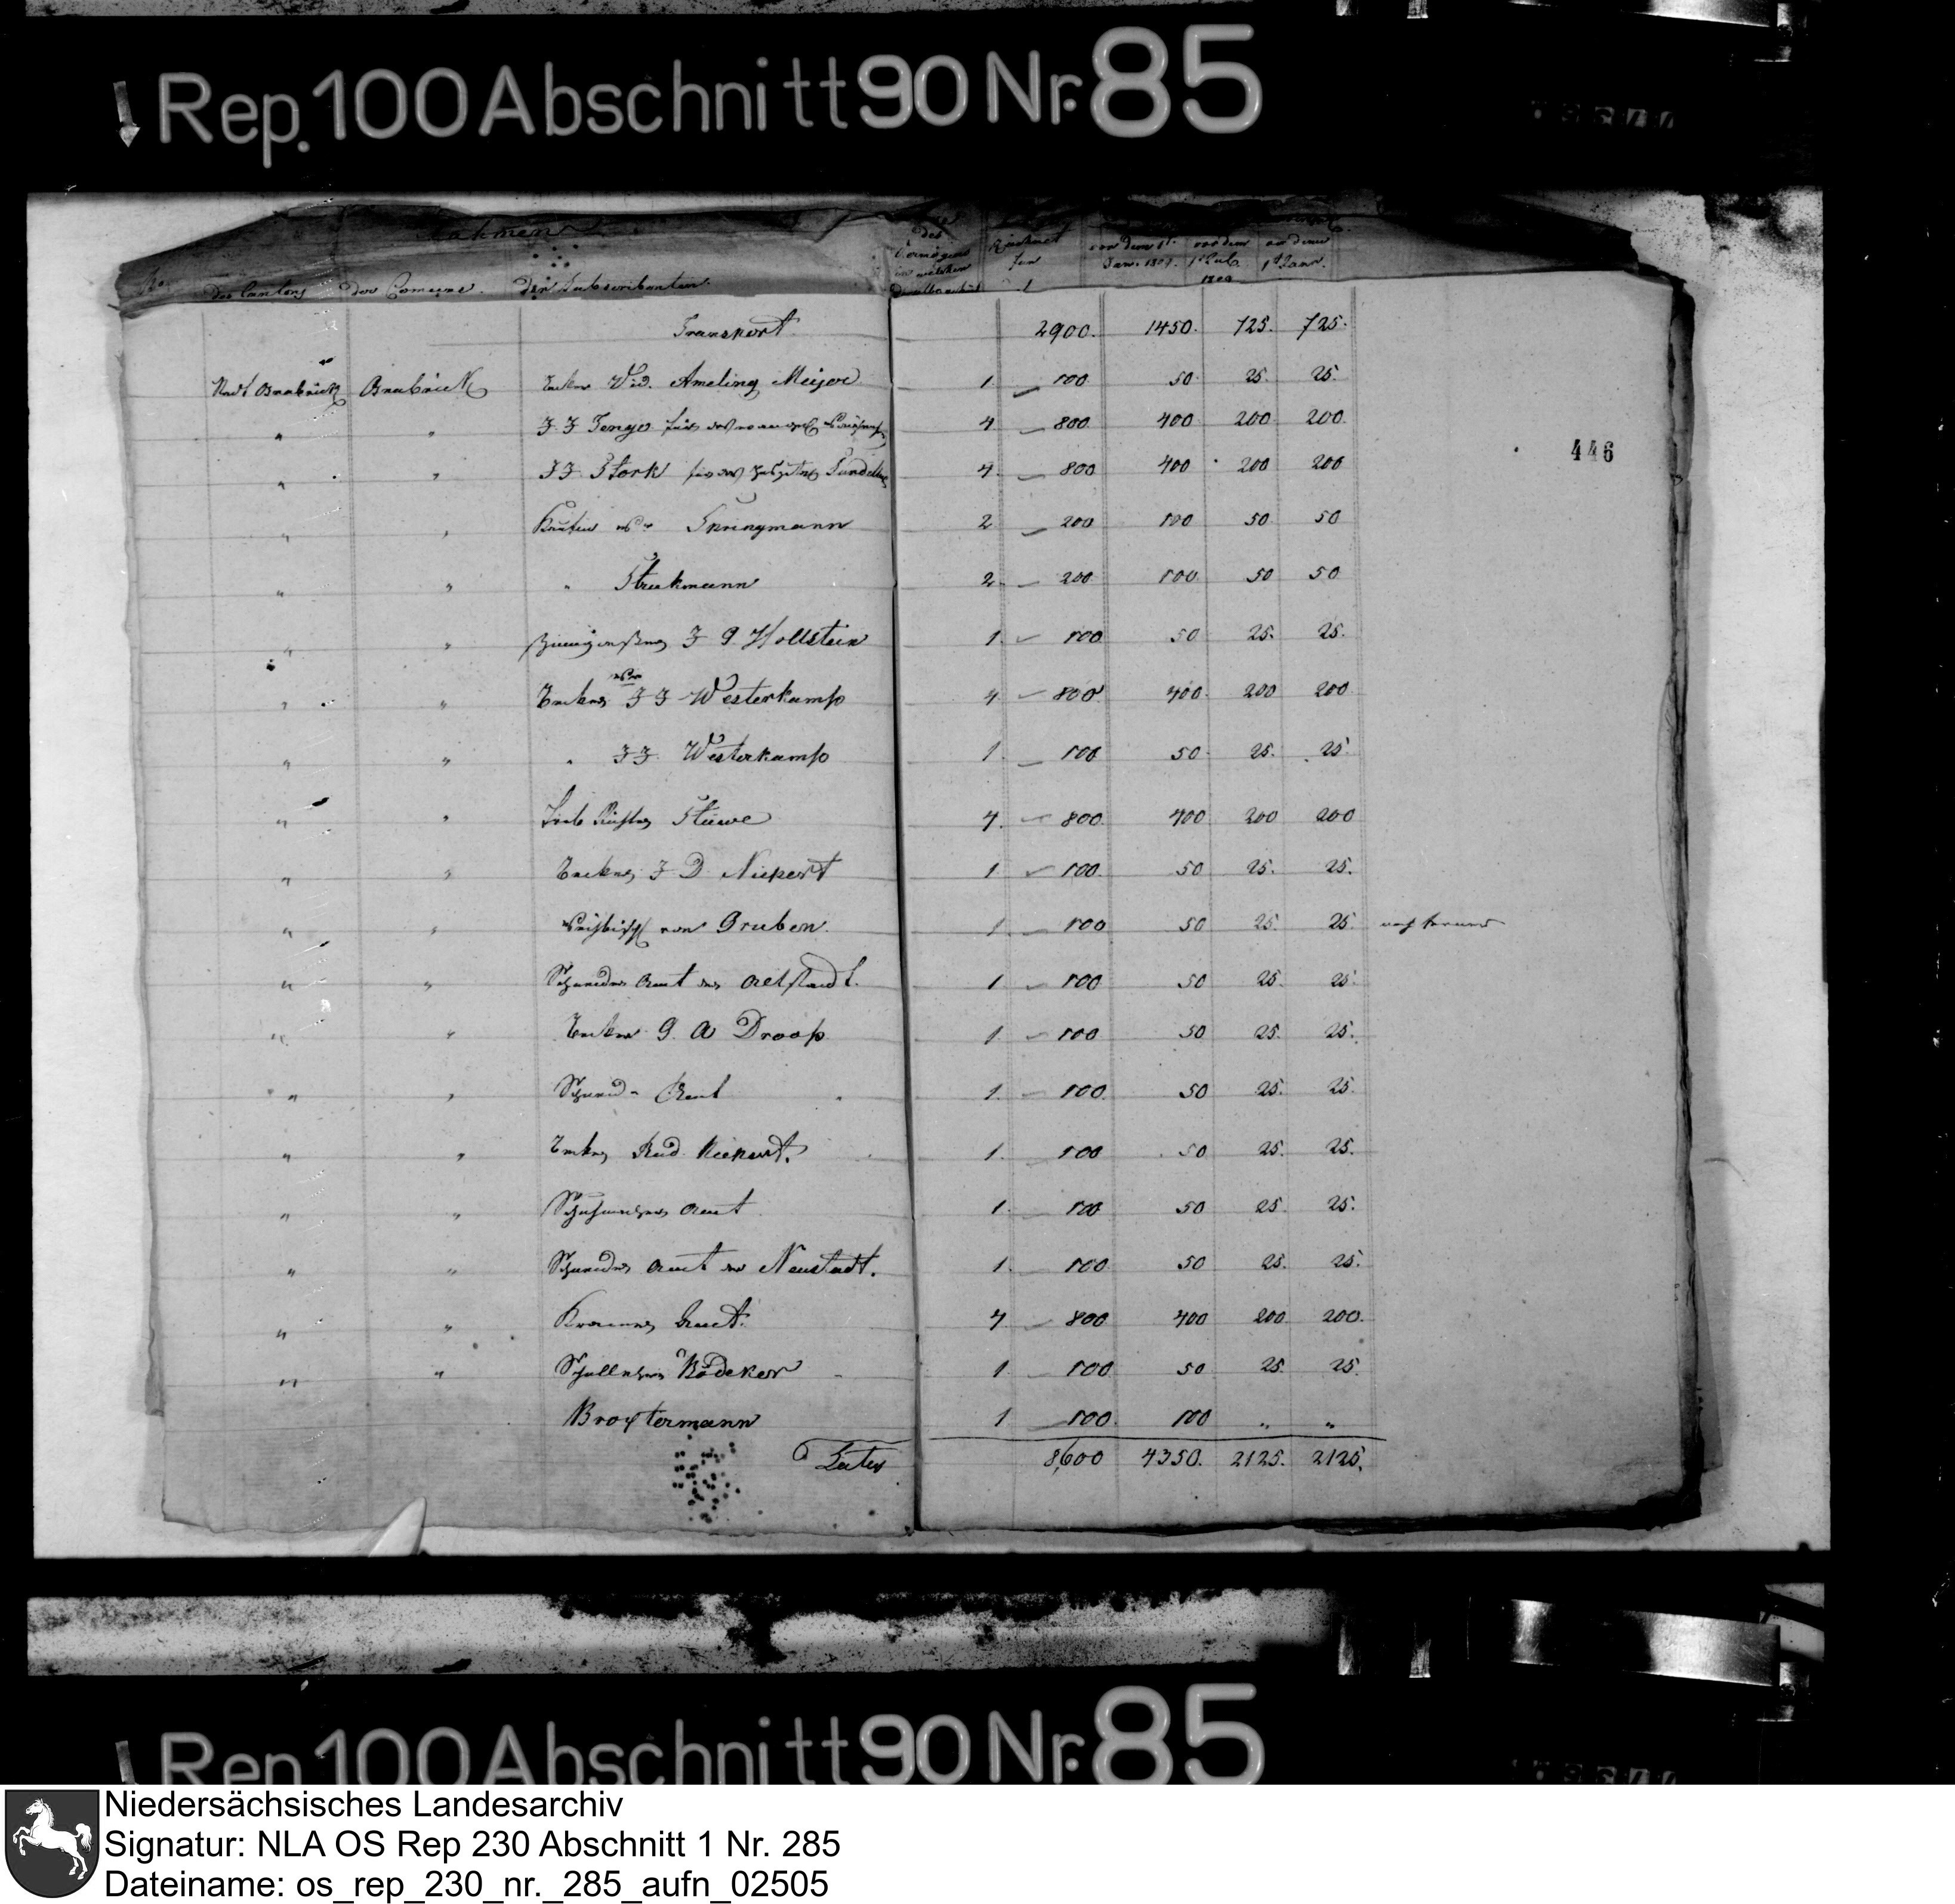 Rep. 100 Abschnitt 90 Nr. 85
Nahmen
des
Vermögens
in welcher
vor dem 1t. vor dem vor dem
Jan. 1809. 1t Jul. 1t Janr.
1809
No. des Cantons der Comune. der Subscribenten.
Transport 2900. 1450. 725. 725.
Stadt Osnabrück Osnabrück Wid. Ameling Meijer 1. 100 50. 25. 25.
" " J. J. Tenge für 4 800. 400 200 200.
446
" " J J Stork für 4. 800 400 200 200
" " Springmann 2 200 100 50 50
" " " Strukmann 2. 200 100 50 50
" " J G. Hollstein 1. 100 50 25. 25.
" " J J Westerkamp 4 800 400. 200 200
" " " J J. Westerkamp 1. 100 50. 25. 25.
" " Stüwe 4. 800. 400 200 200
" " J D. Niepert 1 100. 50 25. 25.
" " von Gruben. 1. 100 50 25. 25
" " Schneider Amt der Altstadt. 1 100 50 25. 25.
" " G. A Droop. 1 100 50 25. 25.
" " Schmid- Amt 1. 100. 50 25. 25.
" " Rud. Niepert. 1. 100 50 25. 25.
" " Schuhmacher Amt 1. 100 50 25. 25.
" " Schneider Amt der Neustadt. 1. 100 50 25. 25.
" " Kramer Amt. 4 800 400 200. 200.
" " Bödeker 1. 100 50 25. 25.
Broxtermann 1 100. 100 " "
Latus 8,600 4350. 2125. 2125.
Rep. 100 Abschnitt 90 Nr. 85
Niedersächsisches Landesarchiv
Signatur: NLA OS Rep 230 Abschnitt 1 Nr. 285
Dateiname: os_rep_230_nr._285_aufn_02505